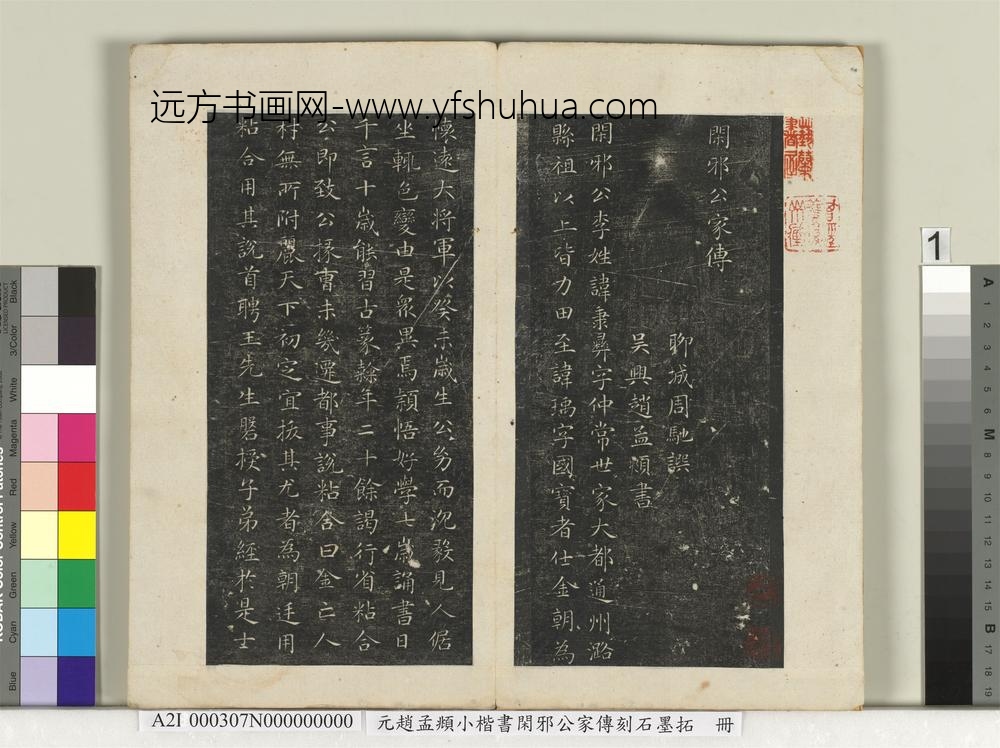 远方书画网-www.yfshuhua.com
閑邪公家傳
聊城周馳譔
吴興趙孟頫書
閑邪公李姓諱秉彝字仲常世家大都通州潞
縣祖以上皆力田至諱瑀字國寶者仕金朝為
懷遠大將軍以癸未歲生公㓜而沉毅見人倨
坐輒色變由是衆異焉穎悟好學七歲誦書日
千言十歲能習古篆隸年二十餘謁行省粘合
公即致公掾曹未幾遷都事說粘合曰金亡人
材無所附麗天下初定宜拔其尤者為朝廷用
粘合用其說首聘王先生磐授子弟經於是士
1
A
1
2
3
4
5
M
8
9
10
11
12
13
14
15
B
17
18
19
Black
3/Color
White
Magenta
Red
Yellow
Green
Cyan
Blue
LICENSED PRODUCT
KODAK Color Control Patches
A2I 000307N000000000
元趙孟頫小楷書閑邪公家傳刻石墨拓 冊